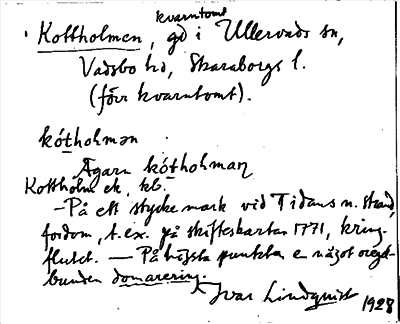 kvarntomt
Kottholmen, gd i Ullervads sn,
Vadsbo hd, Skaraborgs l.
(förr kvarntomt).
kót̲holmən
Ägarn kót̲holmaṇ
Kottholm ek. kb.
– På ett stycke mark vid Tidans n. strand,
fordom, t. ex. på skifteskartan 1771, kring-
flutet. — På högsta punkten en något oregel-
bunden domarering.
Ivar Lindquist 1928